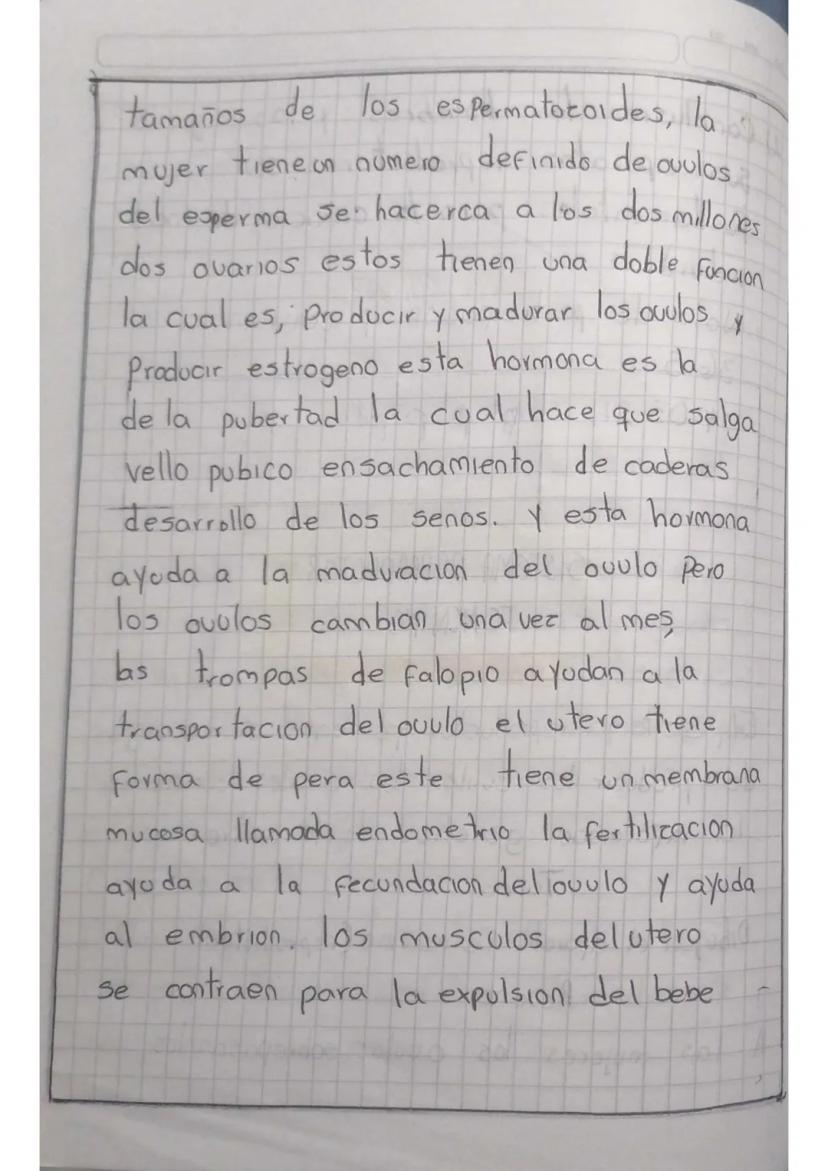 tamaños de los espermatozoides, la
mujer tiene un numero definido de ovulos
del esperma se hacerca a los dos millones
dos ovarios estos tienen una doble funcion
la cual es, producir y madurar los ovulos y
producir estrogeno esta hormona es la
de la pubertad la cual hace que salga
vello pubico ensachamiento de caderas
desarrollo de los senos. y esta hormona
ayuda a la maduracion del ovulo pero
los ovulos cambian una vez al mes,
las trompas de falopio ayudan a la
transportacion del ovulo el utero tiene
forma de pera este tiene un membrana
mucosa llamada endometrio la fertilizacion
ayuda a la fecundacion del ovulo y ayuda
al embrion. los musculos del utero
se contraen para la expulsion del bebe